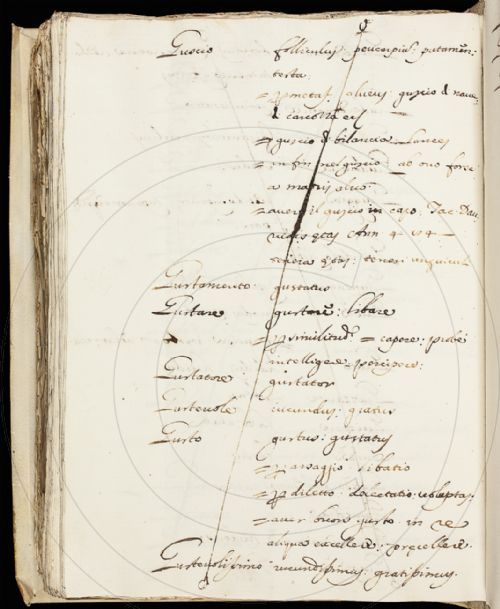 G
Guscio folliculus: pericarpius: putamen:
testa:
= p metaf. alveus guscio d nave
d carozza etc
= guscio d bilancia Lances
= in fin nel guscio ab ovo
a matris alvo
= aver il guscio in capo. Tac.
Ann 4
tenera: teneri unguicul
Gustamento gustatus
Gustare gustare: libare
= p similitud. = capere: probe
intelligere percipere:
Gustatore gustator
Gustevole iucundus: gratus
Gusto gustus: gustatus
= p assaggio libatio
= p diletto: delectatio: voluptas
= aver buon gusto in re
aliqua excellere: precellere
Gustevolissimo iucundissimus: gratissimus.